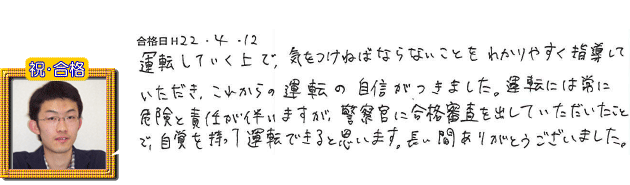 祝・合格
合格日H22.4.12
運転していく上で、気をつけねばならないことをわかりやすく指導して
いただき、これからの運転の自信がつきました。運転には常に
危険と責任が伴いますが、警察官に合格審査を出していただいたこと
で、自覚を持って運転できると思います。長い間ありがとうございました。